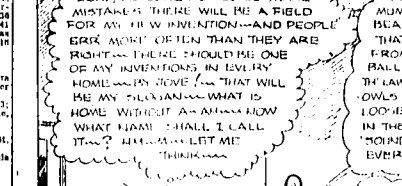 MISTAKES THERE WILL BE A FIELD
FOR MY NEW INVENTION—AND PEOPLE
ERR MORE OFTEN THAN THEY ARE
RIGHT— THERE SHOULD BE ONE
OF MY INVENTIONS IN EVERY
HOME— BY JOVE!— THAT WILL
BE MY SLOGAN— WHAT IS
HOME WITHOUT A— AN— NOW
WHAT NAME SHALL I CALL
IT—? LET ME
THINK—
BALL
OWLS
LOOSE
IN THE
SOUND
EVER